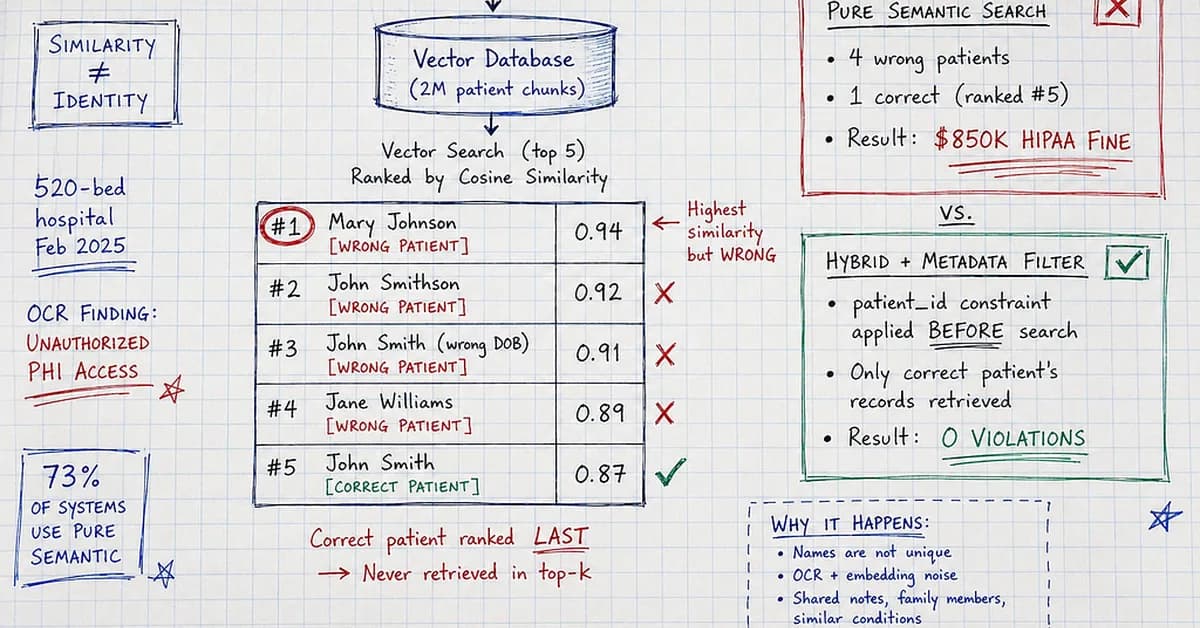 SIMILARITY
≠
IDENTITY
520-bed
hospital
Feb 2025
OCR FINDING:
UNAUTHORIZED
PHI ACCESS
73%
OF SYSTEMS
USE PURE
SEMANTIC
Vector Database
(2M patient chunks)
Vector Search (top 5)
Ranked by Cosine Similarity
#1 Mary Johnson 0.94
[WRONG PATIENT]
#2 John Smithson 0.92
[WRONG PATIENT]
#3 John Smith (wrong DOB) 0.91
[WRONG PATIENT]
#4 Jane Williams 0.89
[WRONG PATIENT]
#5 John Smith 0.87
[CORRECT PATIENT]
Highest
similarity
but WRONG
Correct patient ranked LAST
→ Never retrieved in top-k
PURE SEMANTIC SEARCH
• 4 wrong patients
• 1 correct (ranked #5)
• Result: $850K HIPAA FINE
VS.
HYBRID + METADATA FILTER
• patient_id constraint
applied BEFORE search
• Only correct patient's
records retrieved
• Result: 0 VIOLATIONS
WHY IT HAPPENS:
• Names are not unique
• OCR + embedding noise
• Shared notes, family members,
similar conditions